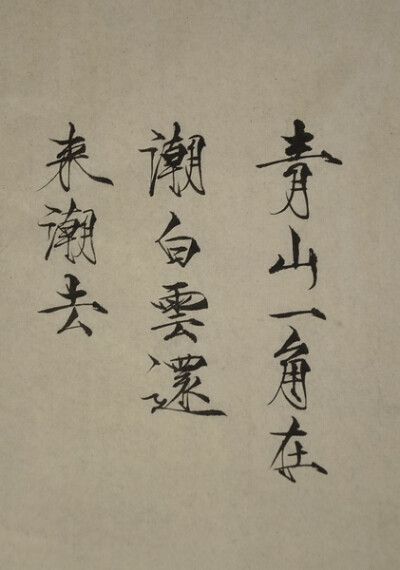 青山一角在
潮白雲還
来潮去